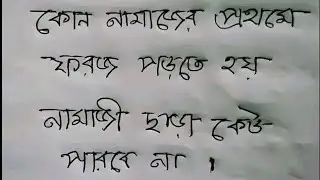 কোন নামাজের প্রথমে
ফরজ পড়তে হয়
নামাজী ছাড়া কেউ
পারবে না ।